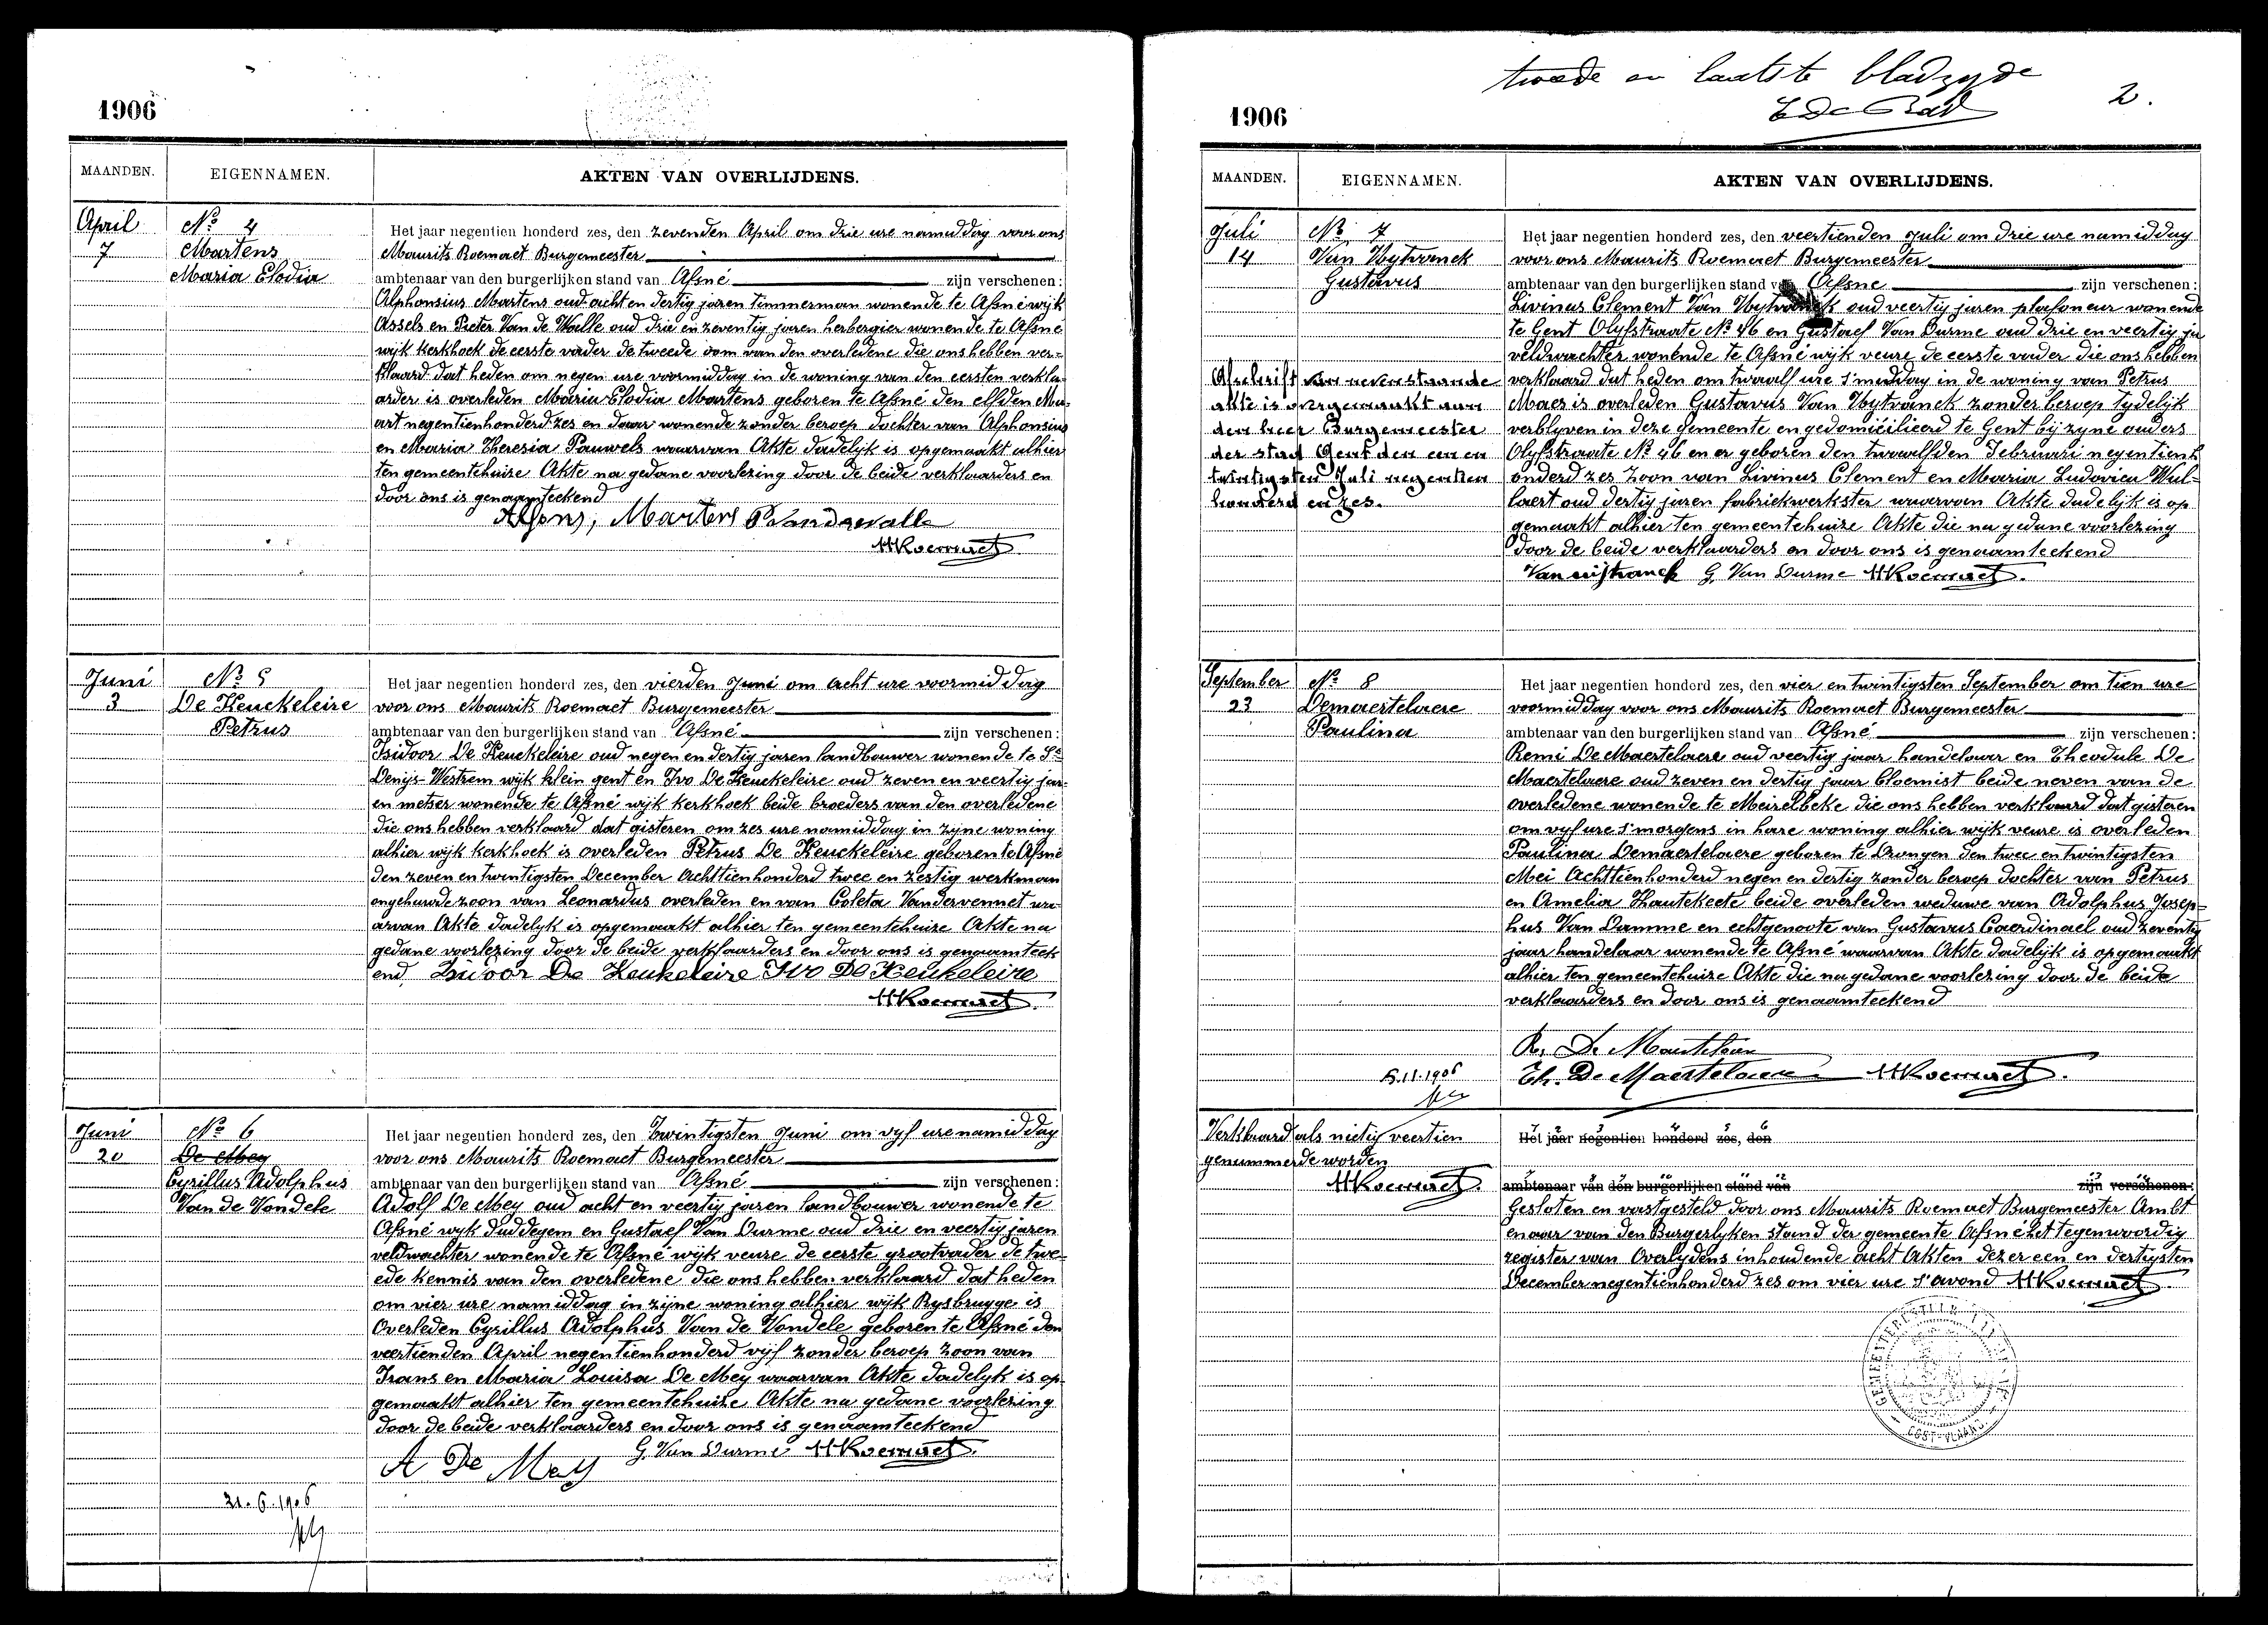 1906
MAANDEN.
EIGENNAMEN.
AKTEN VAN OVERLIJDENS.
April
7
No 4
Martens
Maria Elodia
Het jaar negentien honderd zes, den zevenden April om drie ure namiddag voor ons
Maurits Roemaet Burgemeester
ambtenaar van den burgerlijken stand van Afsné zijn verschenen:
Alphonsius Martens oud acht en dertig jaren timmerman wonende te Afsné wijk
Assels en Pieter Van de Walle oud drie en zeventig jaren herbergier wonende te Afsné
wijk kerkhoek de eerste vader de tweede oom van den overledene die ons hebben ver-
klaard dat heden om negen ure voormiddag in de woning van den eersten verkla-
arder is overleden Maria Elodia Martens geboren te Afsné den elfden Ma-
art negentienhonderd zes en daar wonende zonder beroep dochter van Alphonsius
en Maria Theresia Pauwels waarvan Akte dadelijk is opgemaakt alhier
ten gemeentehuize Akte na gedane voorlezing door de beide verklaarders en
door ons is genaamteekend
Alfons, Martens P Vandewalle
MRoemaet
Juni
3
No 5
De Keuckeleire
Petrus
Het jaar negentien honderd zes, den vierden Juni om acht ure voormiddag
voor ons Maurits Roemaet Burgemeester
ambtenaar van den burgerlijken stand van Afsné zijn verschenen:
Isidoor De Keuckeleire oud negen en dertig jaren landbouwer wonende te St
Denijs-Westrem wijk klein gent en Ivo De Keuckeleire oud zeven en veertig jar-
en metser wonende te Afsné wijk kerkhoek beide broeders van den overledene
die ons hebben verklaard dat gisteren om zes ure namiddag in zyne woning
alhier wijk kerkhoek is overleden Petrus De Keuckeleire geboren te Afsné
den zeven en twintigsten December Achttienhonderd twee en zestig werkman
ongehuwde zoon van Leonardus overleden en van Coleta Vandervennet wa-
arvan Akte dadelyk is opgemaakt alhier ten gemeentehuize Akte na
gedane voorlezing door de beide verklaarders en door ons is genaamteek
end Isidoor De Keukeleire Ivo De Keukeleire
MRoemaet
Juni
20
No 6
De Mey
Cyrillus Adolphus
Van de Vondele
Het jaar negentien honderd zes, den Twintigsten Juni om vyf ure namiddag
voor ons Maurits Roemaet Burgemeester
ambtenaar van den burgerlijken stand van Afsné zijn verschenen:
Adolf De Mey oud acht en veertig jaren landbouwer wonende te
Afsné wyk Duddegem en Gustaef Van Durme oud drie en veertig jaren
veldwachter wonende te Afsné wijk veure de eerste grootvader de twe-
ede kennis van den overledene die ons hebben verklaard dat heden
om vier ure namiddag in zijne woning alhier wijk Rysbrugge is
Overleden Cyrillus Adolphus Van de Vondele geboren te Afsné den
veertienden April negentienhonderd vijf zonder beroep zoon van
Frans en Maria Louisa De Mey waarvan Akte dadelyk is op-
gemaakt alhier ten gemeentehuize Akte na gedane voorlezing
door de beide verklaarders en door ons is genaamteekend
A De Mey G. Van Durme MRoemaet
21-6-1906
twede en laatste bladzyde
2.
1906
MAANDEN.
EIGENNAMEN.
AKTEN VAN OVERLIJDENS.
Juli
14
No 7
Van Uytvanck
Gustavus
Afschrift van nevenstaande
akte is overgemaakt aan
den heer Burgemeester
der stad Gent den een en
twintigsten Juli negentien
honderd en zes.
Het jaar negentien honderd zes, den veertienden Juli om drie ure namiddag
voor ons Maurits Roemaet Burgemeester
ambtenaar van den burgerlijken stand van Afsné zijn verschenen:
Livinus Clement Van Uytvanck oud veertig jaren plafoneur wonende
te Gent Olyfstraate No 46 en Gustaef Van Durme oud drie en veertig ja
veldwachter wonende te Afsné wijk veure de eerste vader die ons hebben
verklaard dat heden om twaalf ure s'middag in de woning van Petrus
Maes is overleden Gustavus Van Uytvanck zonder beroep tydelijk
verblyven in deze gemeente en gedomicilieerd te Gent bij zyne ouders
Olyfstraate No 46 en er geboren den twaalfden Februari negentienh
onderd zes zoon van Livinus Clement en Maria Ludovica Wul-
laert oud dertig jaren fabriekwerkster waarvan Akte dadelijk is op
gemaakt alhier ten gemeentehuize Akte die na gedane voorlezing
door de beide verklaarders en door ons is genaamteekend
Van uijtvanck G. Van Durme MRoemaet.
September
23
No 8
Demaertelaere
Paulina
Het jaar negentien honderd zes, den vier en twintigsten September om tien ure
voormiddag voor ons Maurits Roemaet Burgemeester
ambtenaar van den burgerlijken stand van Afsné zijn verschenen:
Remi De Maertelaere oud veertig jaar handelaar en Theodule De
Maertelaere oud zeven en dertig jaar bloemist beide neven van de
overledene wonende te Meirelbeke die ons hebben verklaard dat gisteren
om vyf ure s'morgens in hare woning alhier wijk veure is overleden
Paulina Demaertelaere geboren te Drongen den twee en twintigsten
Mei Achttienhonderd negen en dertig zonder beroep dochter van Petrus
en Amelia Hautekeete beide overleden weduwe van Adolphus Josep-
hus Van Damme en echtgenoote van Gustavus Caerdinael oud zeventig
jaar handelaar wonende te Afsné waarvan Akte dadelijk is opgemaakt
alhier ten gemeentehuize Akte die na gedane voorlezing door de beide
verklaarders en door ons is genaamteekend
R. De Maertelaere
Th. De Maertelaere MRoemaet.
5.11.1906
Verklaard als nietig veertien
genummerde worden
MRoemaet.
Het jaar negentien honderd zes, den
ambtenaar van den burgerlijken stand van zijn verschenen:
Gesloten en vastgesteld door ons Maurits Roemaet Burgemeester Ambt
enaar van den Burgerlyken stand der gemeente Afsné het tegenwoordig
register van Overlydens inhoudende acht Akten dezer een en dertigsten
December negentienhonderd zes om vier ure s'avond MRoemaet
OOST-VLAAND.